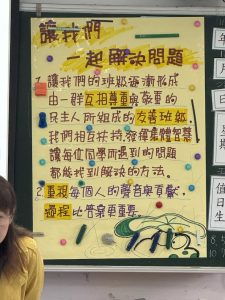 讓我們
一起解決問題
1. 讓我們的班級逐漸形成
由一群互相尊重與敬重的
民主人所組成的友善班級.
我們相互扶持,發揮集體智慧
讓每位同學所遇到的問題
都能找到解決的方法.
2. 重視每個人的聲音與貢獻,
過程比答案更重要.
年
月
日
星期
值日生